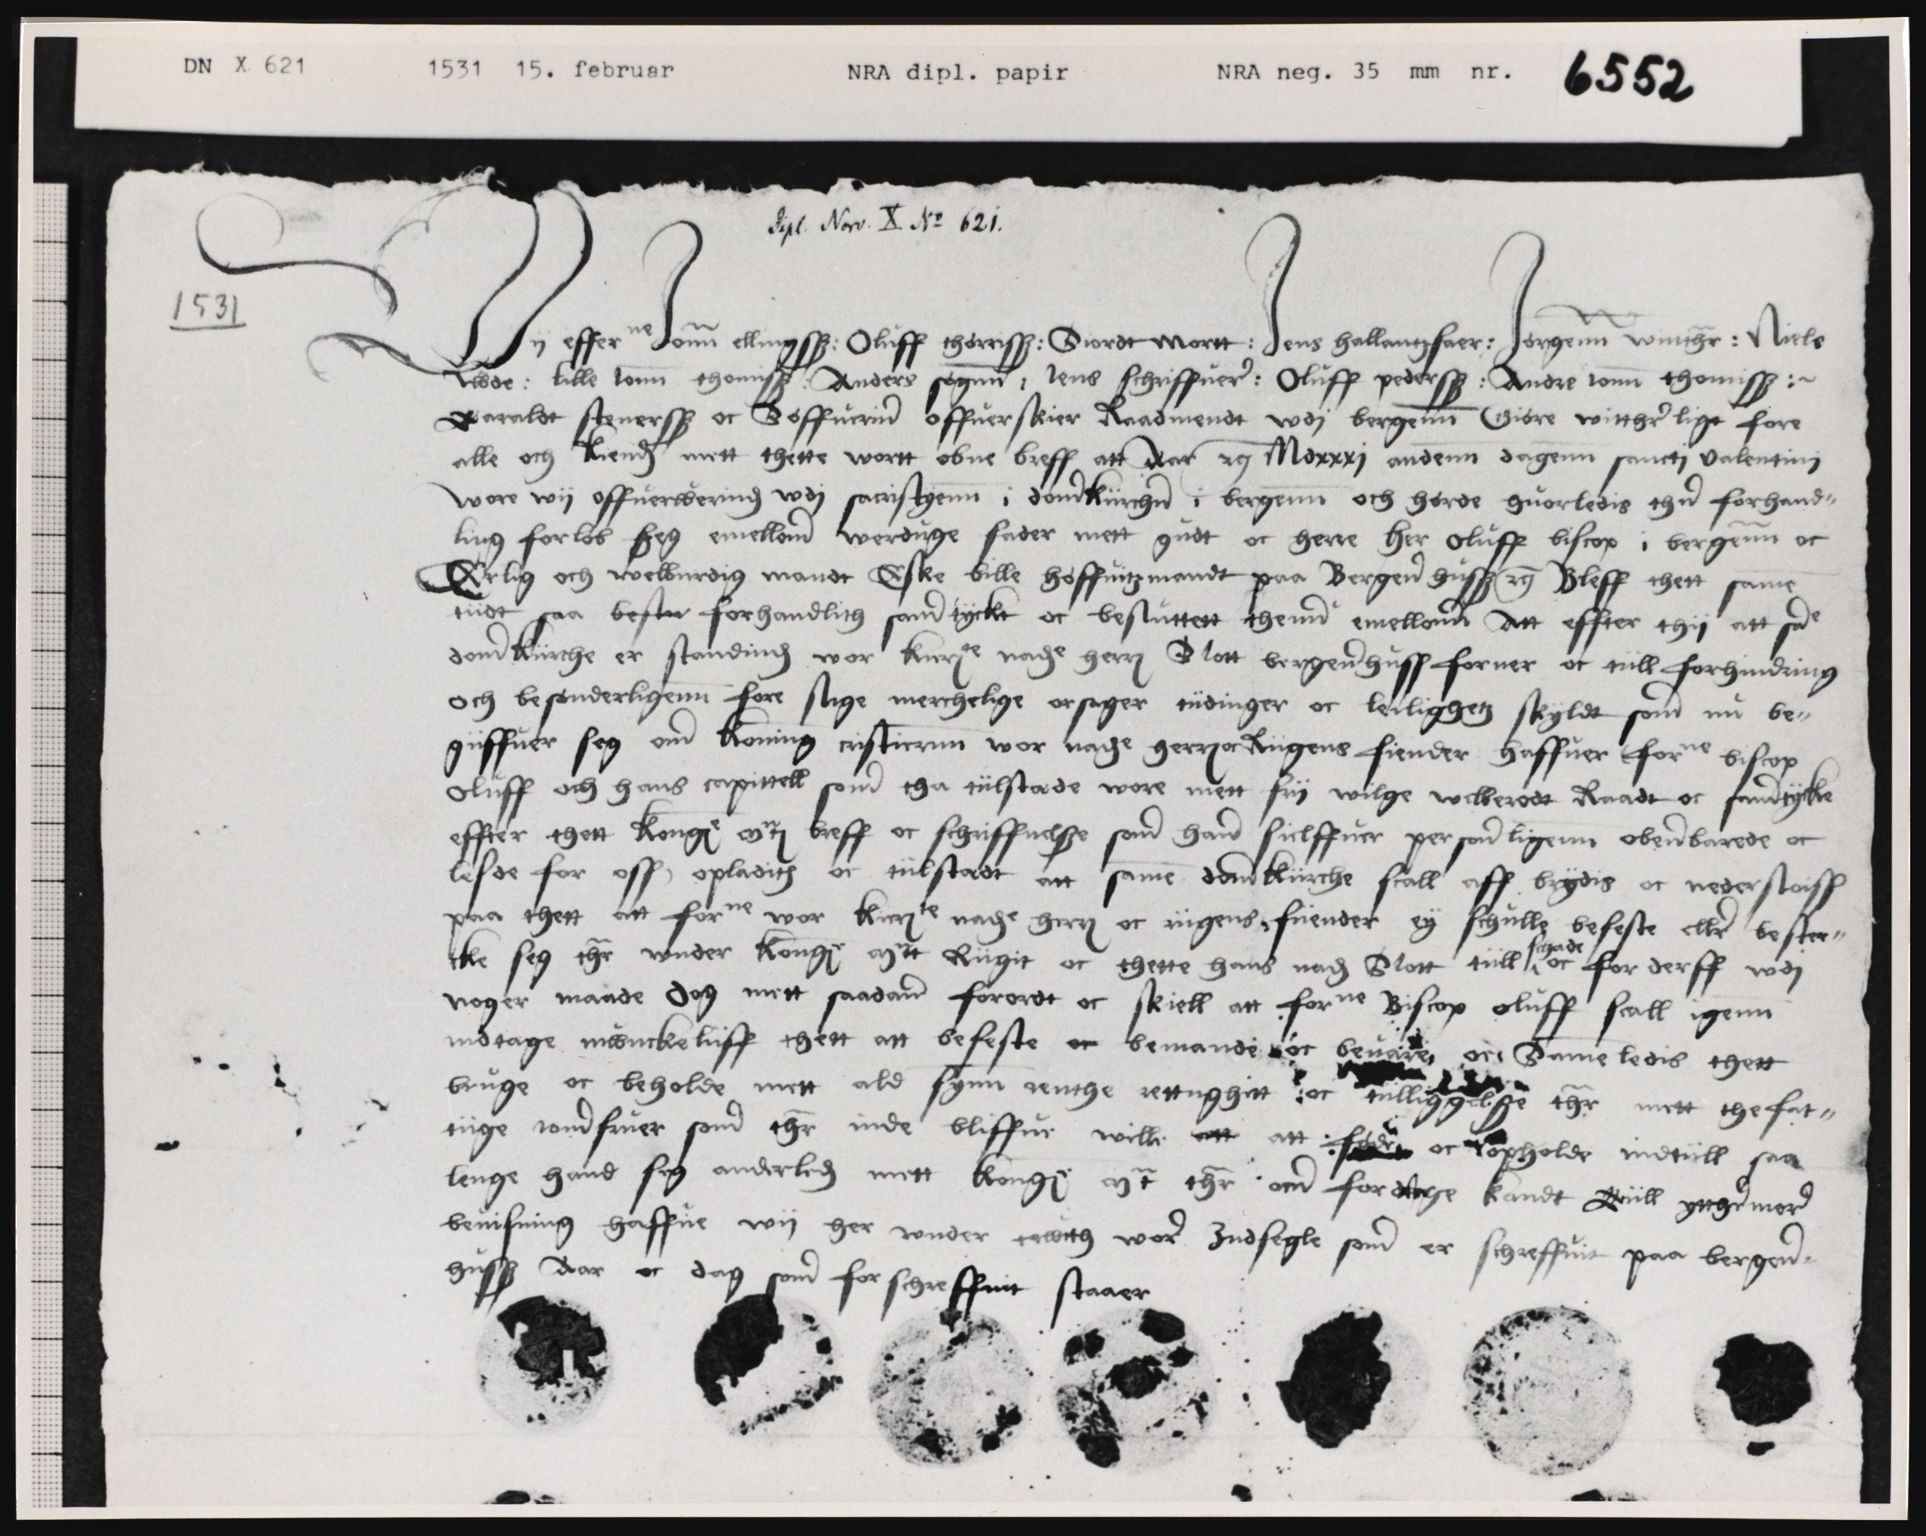 DN X 621 1531 15. februar NRA dipl. papir NRA neg. 35 mm nr. 6552
Dipl. Norv. X. No 621.
1531
Wij effer ne Jonn ellingssz : Oluff thorrissz : Siordt Mortt : Jens hallantzfaer : Jørgenn winther : Niels
: lille Jonn thomissz : Anders : Jens schriffuer : Oluff pederssz : Andre Jonn thomissz :
Haraldt stenerssz oc Søffucrin offuerskier Raadmendt wdj bergenn Giøre wittherligt fore
alle och kiende mett thette wortt obne breff att Aar Mdxxxj andenn dagenn sancti Valentinj
wore wij offuerwerind wdj sacristyenn i domkirchen i bergenn och hørde huorledis then forhand-
ling forlob seg emellom werduge fader mett gudt oc herre Her Oluff biscop i bergenn oc
Erlig och welburdig mandt Eske bille Høffuitzmandt paa Bergenhussz Bleff thett same
tiidt saa forhandlith samtyckt oc besluttett thenn emellom Att effter thij att
domkiirche er standind wor kierste nadge herrs Slott bergenhuss forner oc tiill forhindring
och besønderligenn fore slige merchelige orsager tiidinger oc leilighetz skyldt som nu be-
giiffuer seg om koning cristiernn wor nadge herrs oc Riigens fiender haffuer forne biscop
Oluff och hans capittell som tha tiilstæde wore mett frij wilge welberodt Raadt oc samtycke
effter thett kongs breff oc schriffuelsze som han sielffuer personligenn obenbarede oc
lesde for oss, opladith oc tiilstadt att same domkiirche scall aff brydis oc nederslaiss
paa thett att forne wor kierste nadge herrs oc riigens fiiender ej schulle befeste eller bester-
cke seg ther wnder kongs Riigit oc thette hans nads Slott tiill schade oc forderff wdj
noger maade Dog mett saadan forordt oc skiell att forne Biscop Oluff scall igenn
indtage muncke liiff thett att befeste oc bemande oc beuare, oc Same ledis thett
bruge oc beholde mett ald synn renthe rettughitt oc tiilliggelsze ther mett the fat-
tiige iomfruer som ther inde bliffue wille att oc opholde indtiill saa
lenge hand seg anderleds mett kongs ther om fordrage kandt Tiill ytthermere
beuisning haffue wij her wnder wore Indsegle som er schreffuit paa bergen-
hussz Aar oc dag som forschreffuit staaer